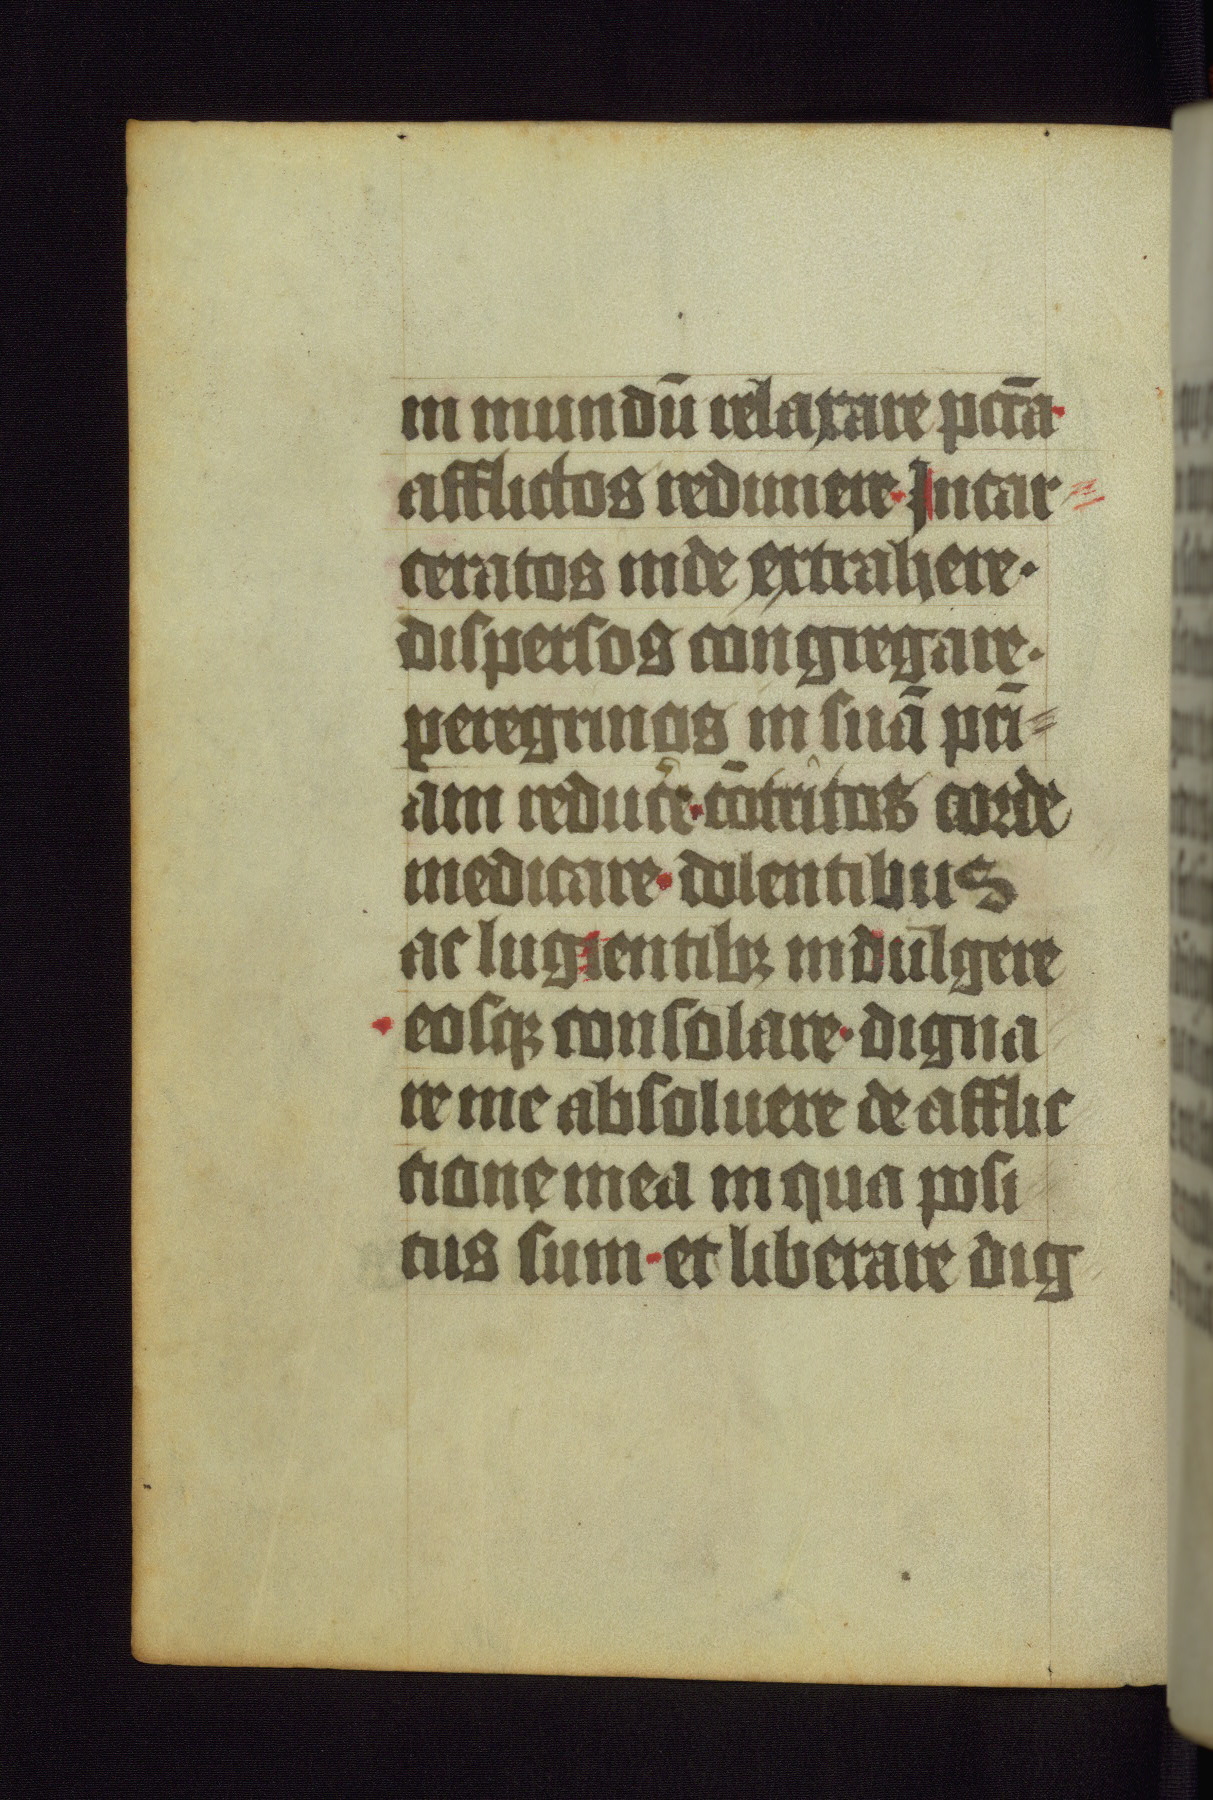 in mundū relaxare pctā·
afflictos redimere· Incar=
ceratos inde extrahere·
dispersos congregare·
peregrinos in suā pri=
am reduc̄e· cōtritos corde
medicare· dolentibus
ac lugientibꝫ indulgere
eosqꝫ consolare· digna
re me absoluere de afflic
tione mea in qua posi
tus sum· et liberare dig